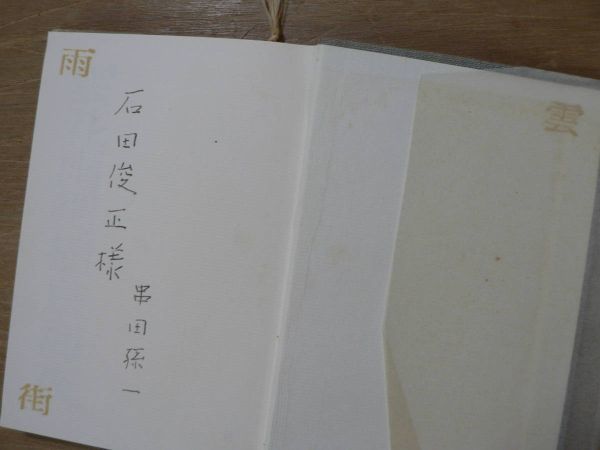 雲
雨
石田俊正様
串田孫一
街